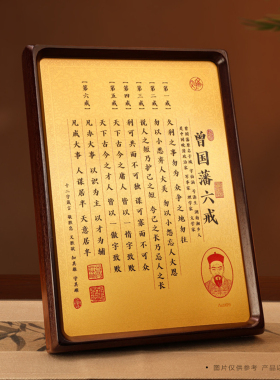 曾国藩六戒
【第一戒】
久利之事勿为 众争之地勿往
【第二戒】
勿以小恶弃人大美 勿以小怨忘人大恩
【第三戒】
说人之短乃护己之短 夸己之长乃忌人之长
【第四戒】
利可共而不可独 谋可寡而不可众
【第五戒】
天下古今之庸人 皆以一惰字致败
天下古今之才人 皆以一傲字致败
【第六戒】
凡办大事 以识为主 以才为辅
凡成大事 人谋居半 天意居半
图片仅供参考